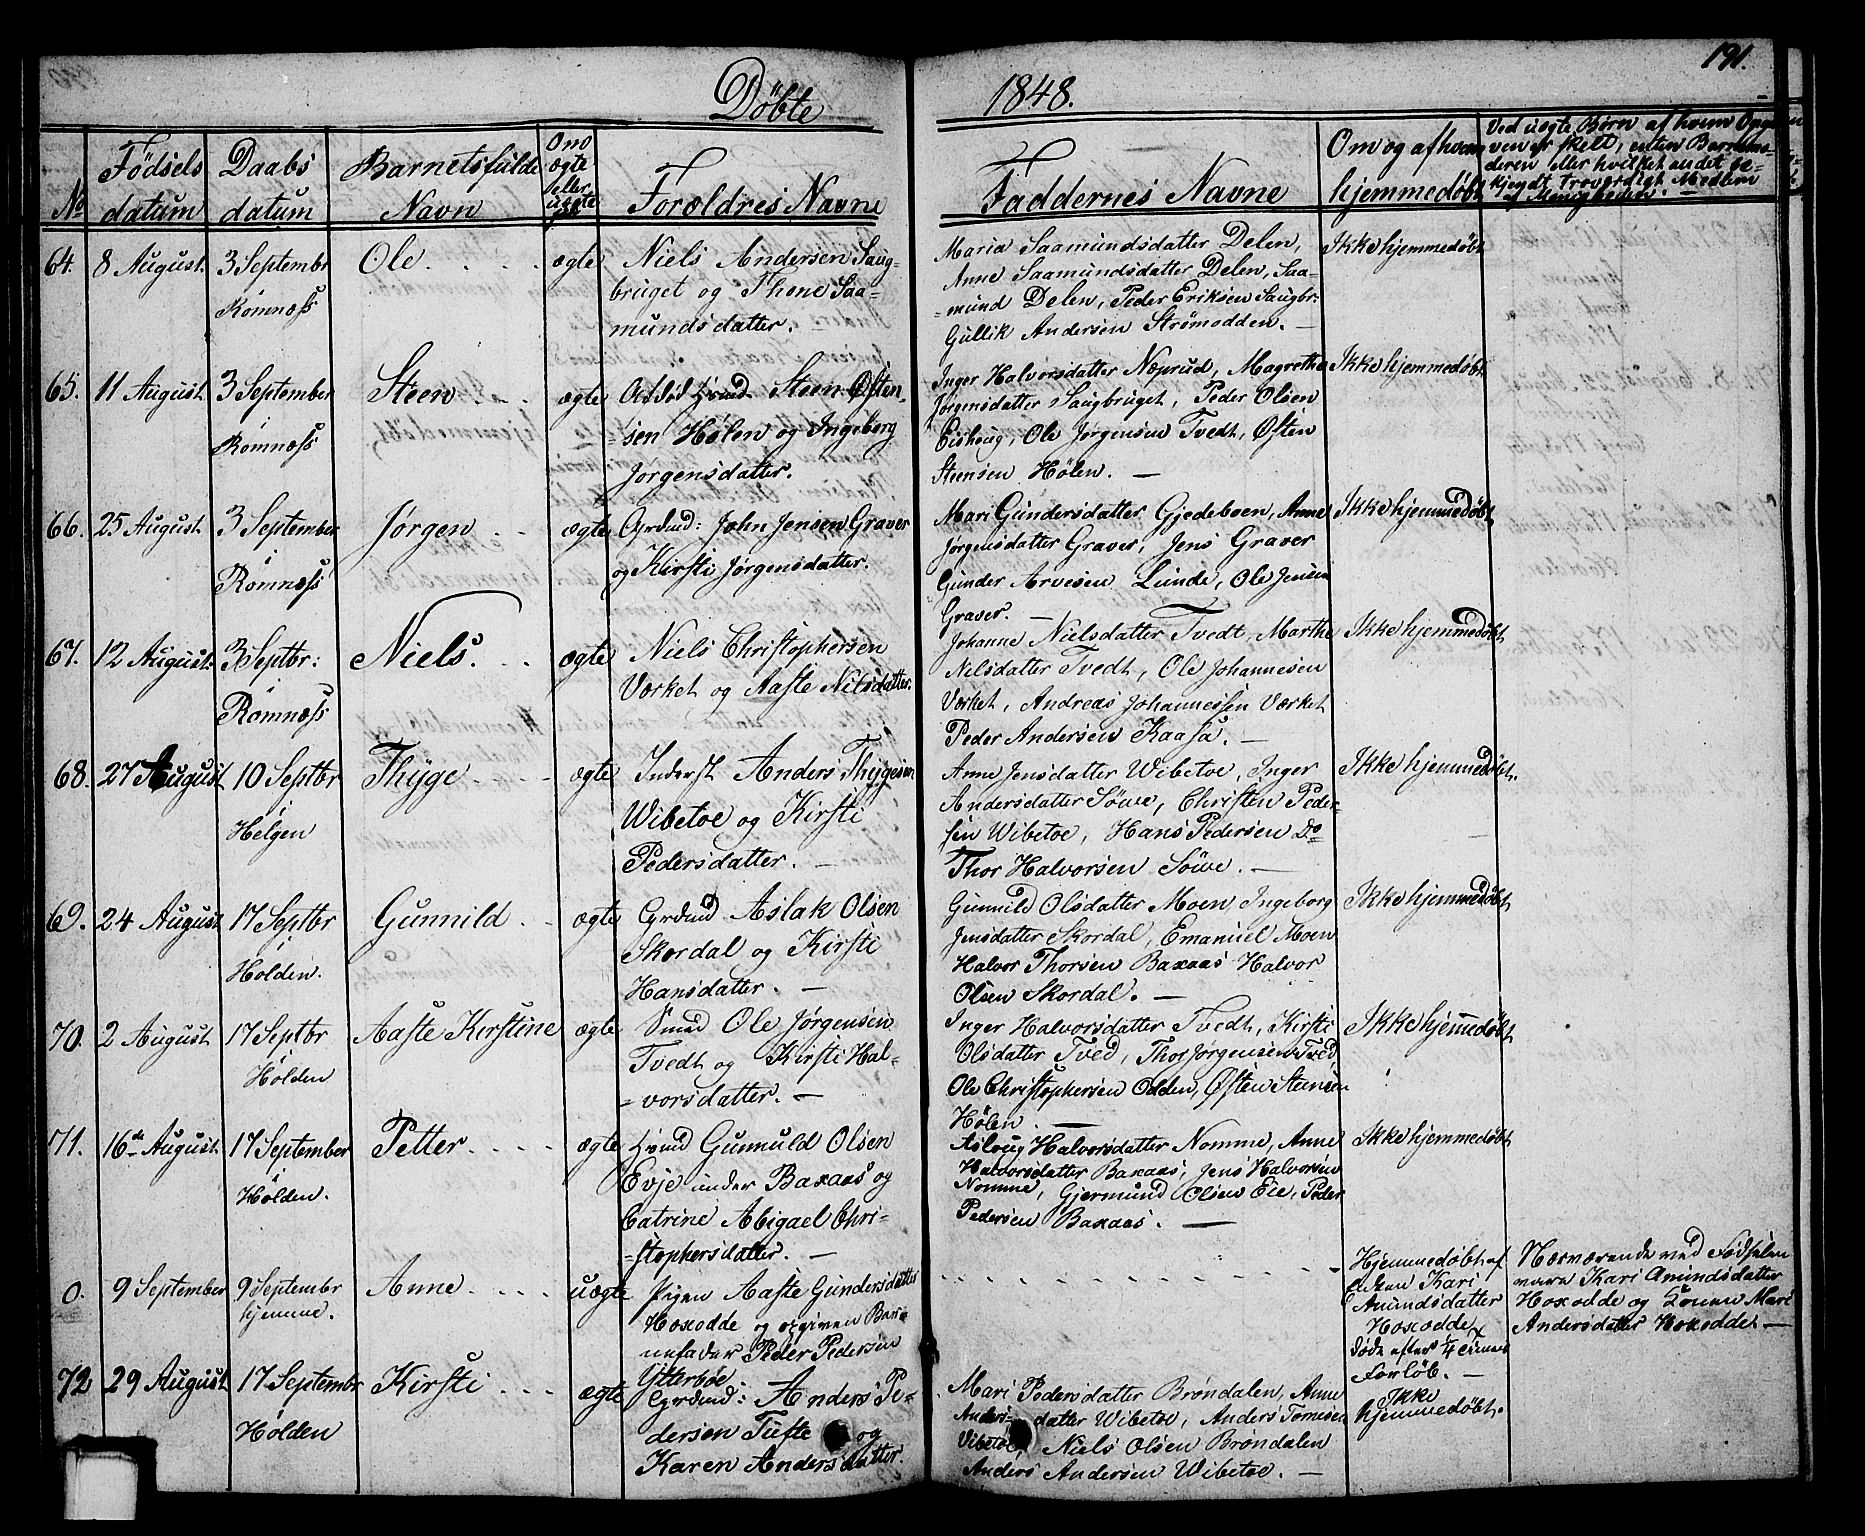 191.
Döbte 1848.
No
Födsels datum
Daabs datum
Barnets fulde Navn
Om ægte eller uægte
Forældres Navne
Faddernes Navne
Om og af hvem hjemmedøbt
Ved uægte Børn af hvem Opgaven er skelt, enten Barnemoderen eller hvilket andet bekjendt troværdigt Medlem af Menigheden.
64. 8 August. 3 Septembr Romnæss Ole. ægte
Niels Andersen Saug-
bruget og Thone Saa=
mundsdatter.
Maria Saamundsdatter Delen,
Anne Saamundsdatter Delen, Saa=
=mund Delen, Peder Eriksen Saugbr:
Gullik Andersen Strømodden. —
Ikke hjemmedøbt
65. 11 August 3 September Romnæss Steen ægte
Afdød Hmd. Steen Østen-
=sen Hølen og Ingeborg
Jørgensdatter.
Inger Halvorsdatter Næprud, Magrethe
Jørgensdatter Saugbruget, Peder Olsen
Eishoug, Ole Jørgensen Tvedt, Østen
Steensen Hølen. —
Ikke hjemmedøbt
66. 25 August 3 September Romnæss Jørgen ægte
Grdmd: John Jensen Graver
og Kirsti Jørgensdatter.
Mari Gundersdatter Gjedeboen, Anne
Jørgensdatter Graver, Jens Graver
Gunder Arvesen Lunde, Ole Jensen
Graver. —
Ikke hjemmedøbt
67. 12 August: 3 Septbr: Romnæss Niels. ægte
Niels Christophersen
Værket og Aaste Nilsdatter.
Johanne Nielsdatter Tvedt, Marthe
Nilsdatter Tvedt, Ole Johannesen
Værket, Andreas Johannessen Værket
Peder Andersen Kaasa. —
Ikke hjemmedøbt
68. 27 August 10 Septbr i Helgen Thyge ægte
Inderst Anders Thygesen
Wibetoe og Kirsti
Pedersdatter. —
Anne Jensdatter Wibetoe, Inger
Andersdatter Söwe, Christen Peder-
sen Wibetoe, Hans Pedersen Do
Thor Halvorsen Söwe. —
Ikke hjemmedøbt.
69. 24 August 17 Septbr i Holden. Gunnild ægte
Grdmd Aslak Olsen
Skordal og Kirsti
Hansdatter. —
Gunnild Olsdatter Moen, Ingeborg
Jensdatter Skordal, Emanuel Moen
Halvor Thorsen Baxaas Halvor
Olsen Skordal. —
Ikke hjemmedøbt
70. 2 August 17 Septbr i Holden Aaste Kirstine ægte
Smed Ole Jørgensen
Tvedt og Kirsti Hal=
=vorsdatter. —
Inger Halvorsdatter Tvedt, Kirsti
Olsdatter Tved, Thor Jørgensen Tved
Ole Christophersen Odden, Østen Steensen
Hølen. —
Ikke hjemmedøbt
71. 16de August 17 September i Holden. Petter ægte
Hmd Gunnuld Olsen
Evje under Baxaas og
Catrine Abigael Chri-
=stophersdatter. —
Asloug Halvorsdatter Nomme, Anne
Halvorsdatter Baxaas, Jens Halvorsen
Nomme, Gjermund Olsen Eie, Peder
Pedersen Baxaas. —
Ikke hjemmedøbt
0. 9 September 9 Septembr hjemme. Anne uægte
Pigen Aaste Gundersdatter
Hoxodde og opgiven Barn
nefader Peder Pedersen
Ytterbøe.
Hjemmedøbt af
Enken Kari
Amundsdatter
Hoxodde
døde efter 1/4 Times
Forløb. —
Nærværende ved Fødselen
vare Kari Amundsdatter
Hoxodde og Konen Mari
Andersdatter Hoxodde —
72 29 August 17 Septembr i Holden Kirsti ægte
Grdmd: Anders Pe=
dersen Tufte og
Karen Andersdatter.
Mari Pedersdatter Brøndalen, Anne
Anders-datter Wibetoe, Anders Tomesen
Vibetoe, Niels Olsen Brøndalen
Anders Andersen Wibetoe. —
Ikke
hjemmedøbt.